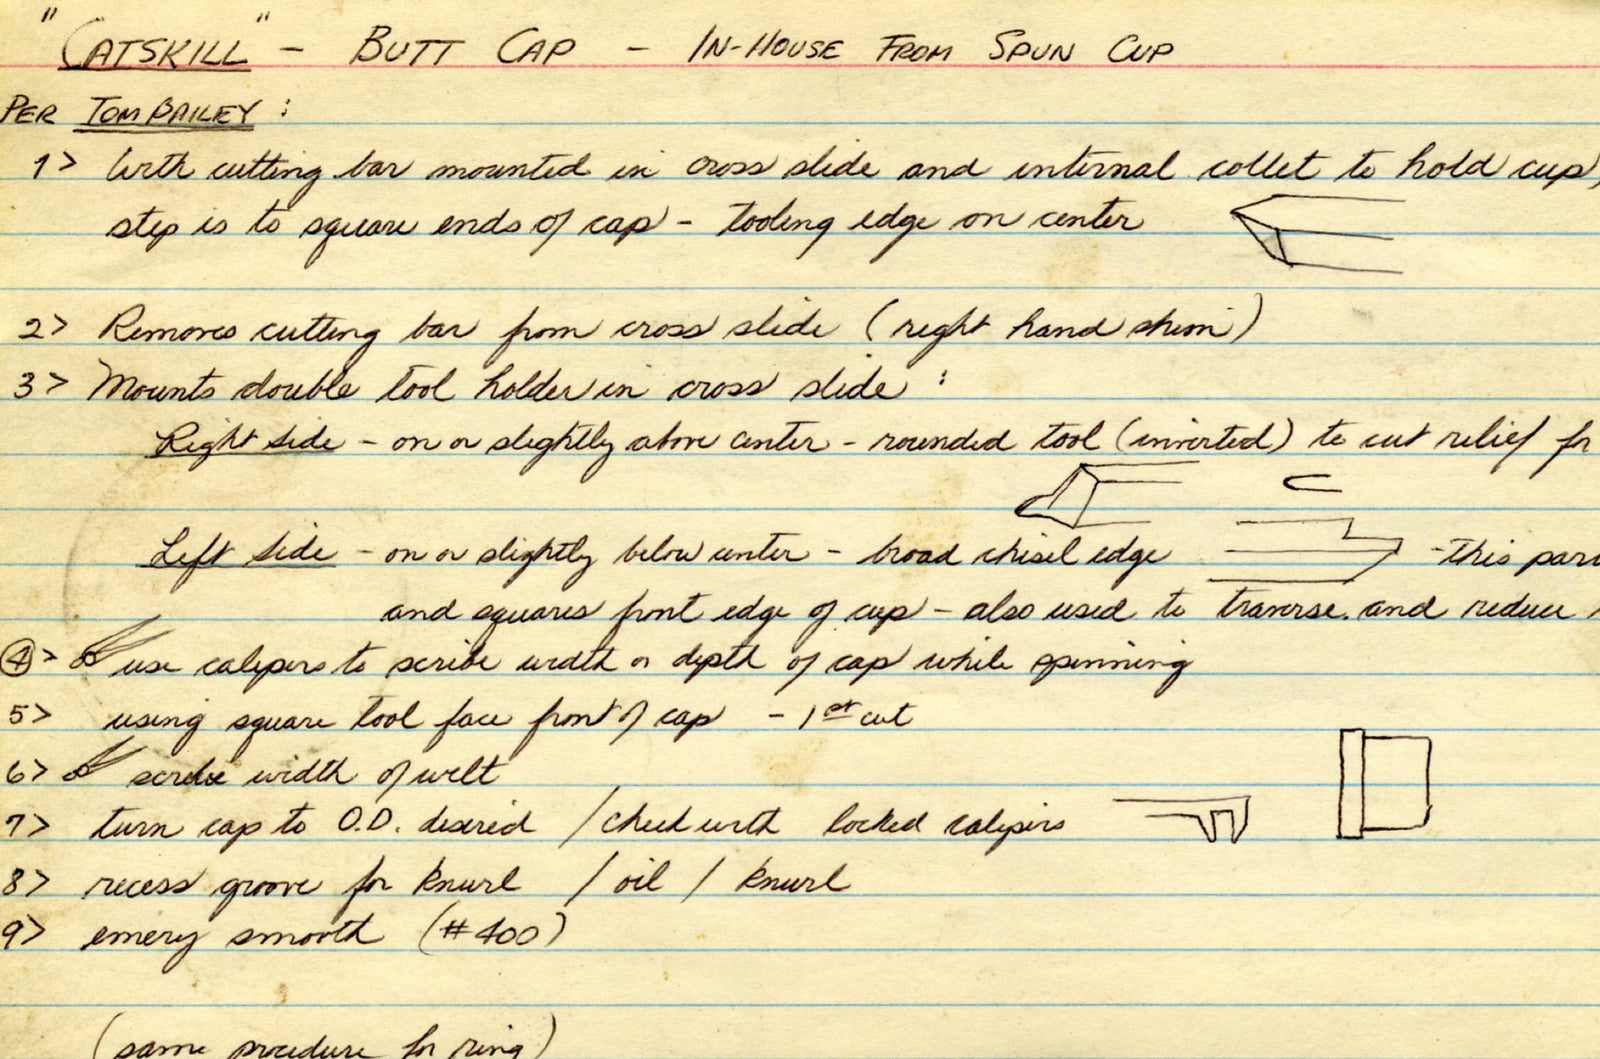 "CATSKILL" - BUTT CAP - IN-HOUSE FROM SPUN CUP
PER TOM BAILEY :
1> With cutting bar mounted in cross slide and internal collet to hold cup,
step is to square ends of cap - tooling edge on center
2> Removes cutting bar from cross slide (right hand shim)
3> Mounts double tool holder in cross slide :
Right side - on or slightly above center - rounded tool (inverted) to cut relief for
Left side - on or slightly below center - broad chisel edge - this
and squares front edge of cup - also used to traverse and reduce
4> use calipers to scribe width or depth of cap while spinning
5> using square tool face front of cap - 1st cut
6> scribe width of welt
7> turn cap to O.D. desired / check with locked calipers
8> recess groove for knurl / oil / knurl
9> emery smooth (#400)
(same procedure for ring)